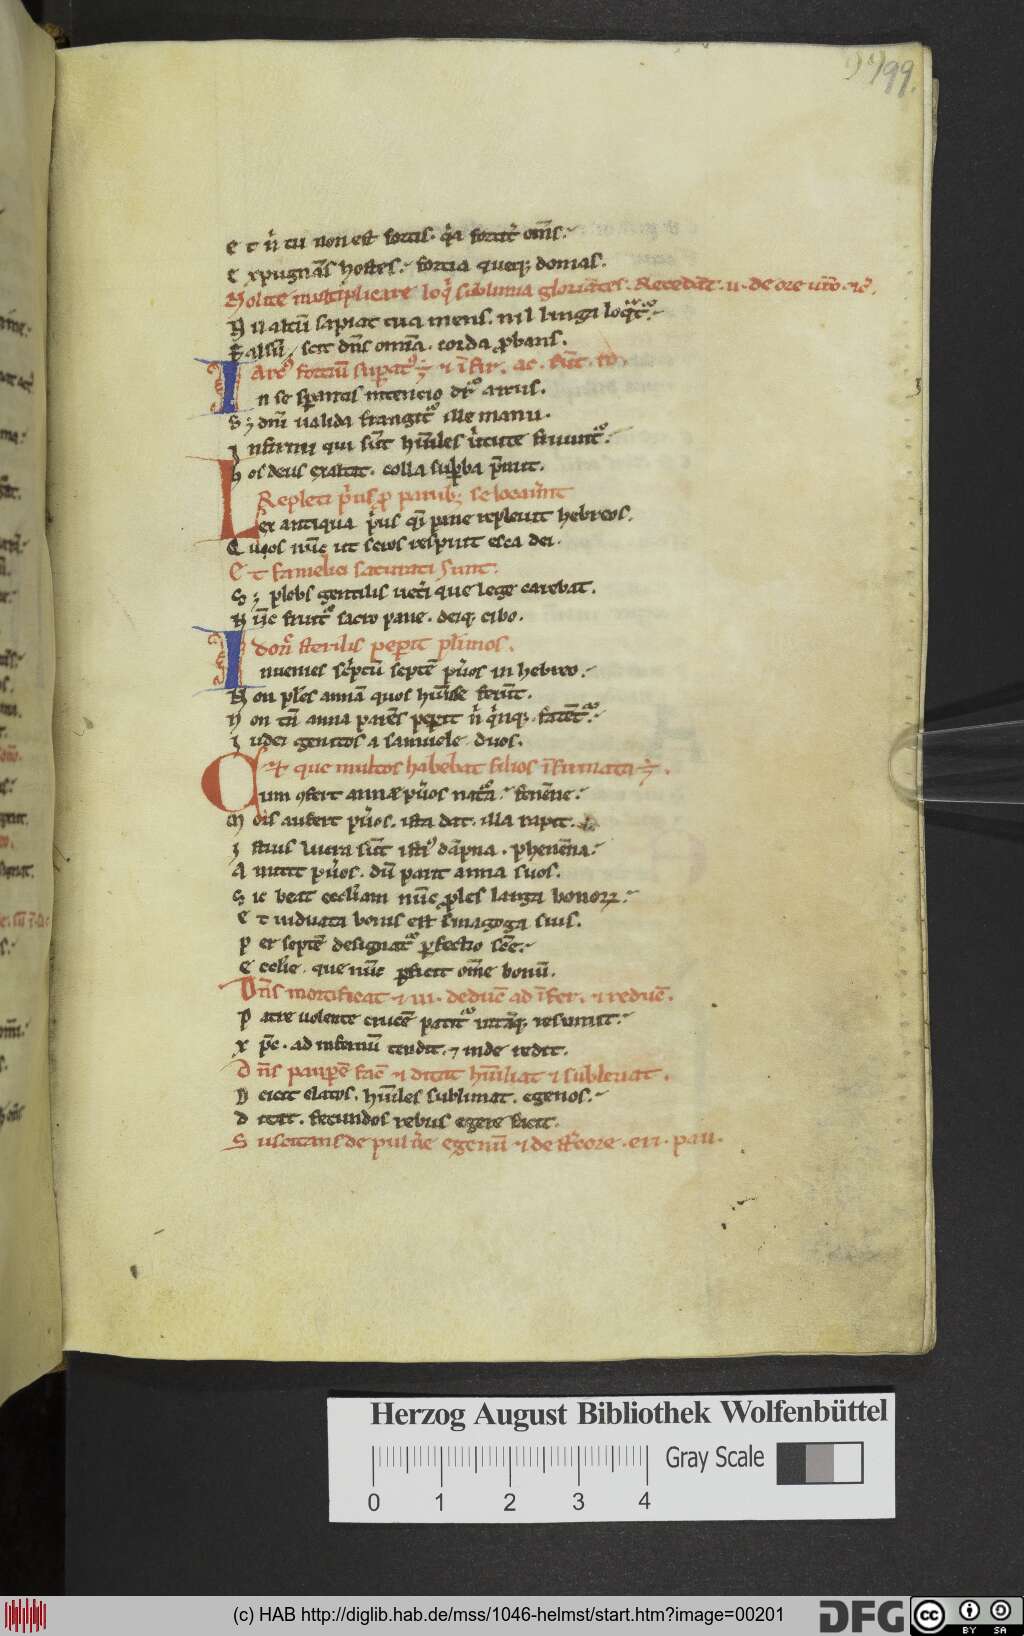 99 99.
E t n̄ tu non est fortis. q̄a fortit̄ om̄s.
E xpugnās hostes. fortia queq; domas.
Nolite multiplicare loq̄ sublimia gloriātes. Recedāt. v. de ore vr̄o. &c̄.
N il altū sapiat tua mens. nil lingua loq̄t᷑.
F alsū, scit dn̄s omīa. corda ꝓbans.
Arc᷒ fortiū suꝑat᷒
I n se sperantis intencio dr̄ arcus.
S; dn̄i ualida frangit᷑ ille manu.
I nfirmi qui sūt hūiles uirtute fruunt᷑.
H os deus exaltat. colla suꝑba p̄mit.
Repleti p̄us ꝓ panib; se locauer̄t
Lex antiqua p̄us q̄i pane repleuit hebreos.
Q uos nūc ut scios respuit esca dei.
E t famelici saturati sunt.
S ; plebs gentilis uet̄i que lege carebat.
N ūc fruit᷑ sacro pane. deiq; cibo.
I don̄ sterilis peperit pl̄imos.
I nuenies sc̄ptū septē pu̅os in hebreo.
N on pl̄es annā quos hūisse ferūt.
N on tn̄ anna parēs peꝑit n̄ q̄nq; fatēt᷑.
I udei genitos a samuele duos.
Et que multos habebat filios īfirmata ē.
Cum ꝯfert annæ pu̅os nat᷑a. fenēne.
M ors aufert pu̅os. ista dat. illa rapit.
I stius lucra sūt isti᷒ dāpna. phenēna.
A mittit pu̅os. dū parit anna suos.
S ic beat eccl̄iam nūc ꝓles larga bonoꝝ.
E t uiduata bonis est sinagoga suis.
P er septē designat᷑ ꝑfectio sc̄e.
E ccl̄ie. que nūc ꝑficit om̄e bonū.
Dn̄s mortificat & ui. deducē ad īfer. & reducē.
P atre uolente crucē patit᷑ uitāq; resumit.
X p̄c. ad infernū tendit. & inde redit.
D n̄s pauꝑē facē & ditat hūiliat & subleuat.
D eicit elatos. hūiles sublimat. egenos.
D itat. fecundos rebus egere facit.
S uscitans de puluere egenū & de st̄core. eri. pau.
Herzog August Bibliothek Wolfenbüttel
Gray Scale
0 1 2 3 4
(c) HAB http://diglib.hab.de/mss/1046-helmst/start.htm?image=00201
DFG
cc BY SA